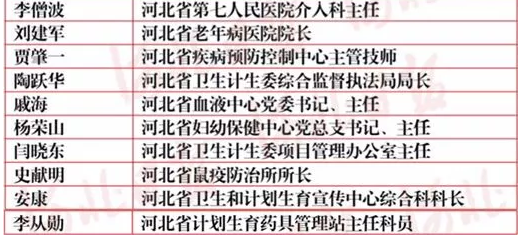 李僧波 河北省第七人民医院介入科主任
刘建军 河北省老年病医院院长
贾肇一 河北省疾病预防控制中心主管技师
陶跃华 河北省卫生计生委综合监督执法局局长
戚海 河北省血液中心党委书记、主任
杨荣山 河北省妇幼保健中心党总支书记、主任
闫晓东 河北省卫生计生委项目管理办公室主任
史献明 河北省鼠疫防治所所长
安康 河北省卫生和计划生育宣传中心综合科科长
李从勋 河北省计划生育药具管理站主任科员